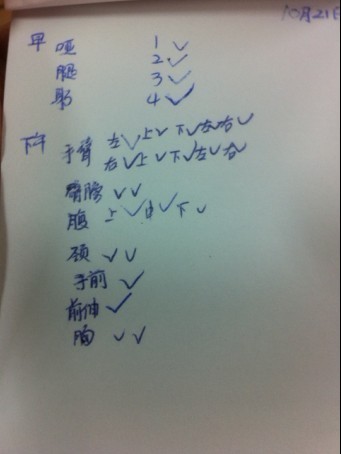 10月21日
早 哑 1 ✓
腿 2 ✓
3 ✓
4 ✓
下午 手臂 左✓上✓下✓左✓右✓
右✓上✓下✓左✓右✓
臂膀 ✓✓
腹 上✓中✓下✓
颈 ✓✓
手前 ✓
前曲 ✓
胸 ✓✓